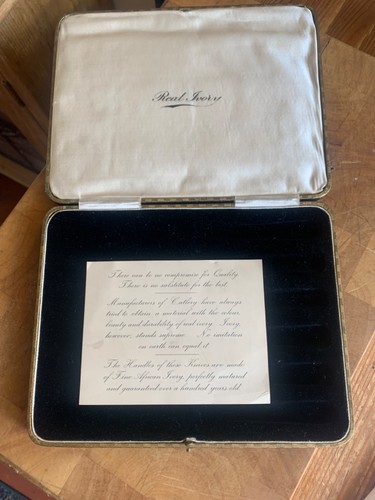 Real Ivory
There can be no compromise for Quality.
There is no substitute for the best.
Manufacturers of Cutlery have always
tried to obtain a material with the colour,
beauty and durability of real ivory. Ivory
however, stands supreme. No imitation
on earth can equal it.
The Handles of these Knives are made
of True African Ivory, perfectly matured
and guaranteed over a hundred years old.